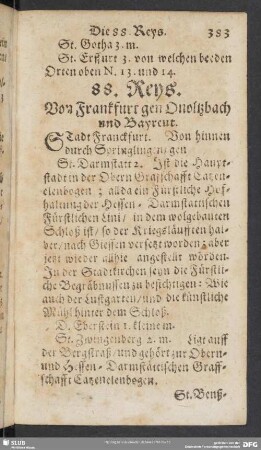 Die 88. Reys. 383
St. Gotha 3. m.
St. Erffurt 3. von welchen beeden
Orten oben N. 13. und 14.
88. Reys.
Von Franckfurt gen Onoltzbach
und Bayreut.
STadt Franckfurt. Von hinnen
durch Springlingen/ gen
St. Darmstatt 2. Ist die Haupt-
stadt in der Obern Graffschafft Catzen-
elenbogen; allda ein Fürstliche Hof-
haltung der Hessen-Darmstattischen
Fürstlichen Lini/ in dem wolgebauten
Schloß ist/ so der Kriegsläufften hal-
ber/ nach Giessen versetzt worden/ aber
jetzt wieder allhie angestellt worden.
In der Stadtkirchen seyn die Fürstli-
che Begräbnussen zu besichtigen: Wie
auch der Lustgarten/ und die künstliche
Mühl hinter dem Schloß.
D. Eberstein 1. kleine m.
St. Zwingenberg 2. m. Ligt auff
der Bergstraß/ und gehört zur Obern-
und Hessen-Darmstättischen Graff-
schafft Catzenelenbogen.
St. Benß-